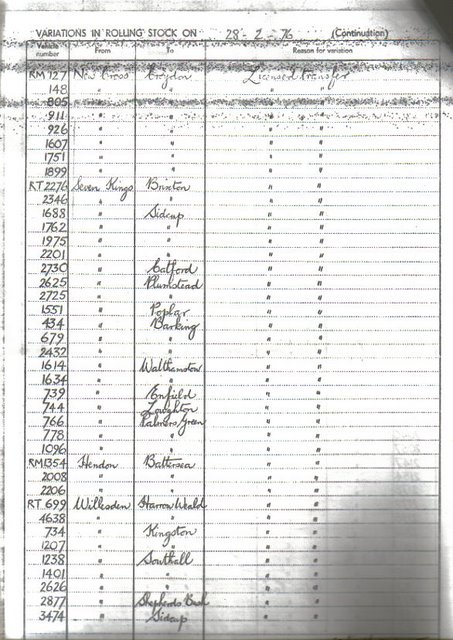 VARIATIONS IN ROLLING STOCK ON 28-2-76 (Continuation)
Vehicle number From To Reason for variation
RM 127 New Cross Croydon Licensed transfer
148 " " " "
805 " " " "
911 " " " "
926 " " " "
1607 " " " "
1751 " " " "
1899 " " " "
RT 2276 Seven Kings Brixton " "
2346 " " " "
1688 " Sidcup " "
1762 " " " "
1975 " " " "
2201 " " " "
2730 " Catford " "
2625 " Plumstead " "
2725 " " " "
1551 " Poplar " "
434 " Barking " "
679 " " " "
2432 " " " "
1614 " Walthamstow " "
1634 " " " "
739 " Enfield " "
744 " Loughton " "
766 " Palmers Green " "
778 " " " "
1096 " " " "
RM 1354 Hendon Battersea " "
2008 " " " "
2206 " " " "
RT 699 Willesden Harrow Weald " "
4638 " " " "
734 " Kingston " "
1207 " " " "
1238 " Southall " "
1401 " " " "
2626 " " " "
2877 " Shepherds Bush " "
3474 " Sidcup " "